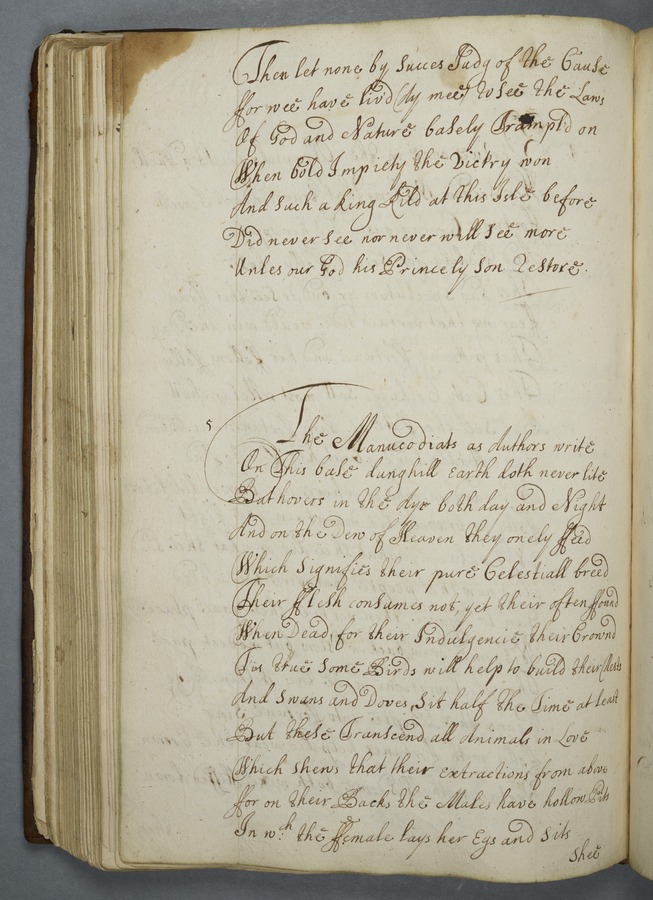 Then let none by Succes Judg of the Cause
ffor wee have liv'd (Ay mee) to See the Laws
Of God and Nature basely Trampl'd on
When bold Impiety the Victry won
And Such a king Kild at this Isle before
Did never See nor never will See more
Unles our God his Princely Son Restore.
5
The Manucodiats as Authors write
On This base dunghill Earth doth never lite
But hovers in the Ayr both day and Night
And on the Dew of Heaven they onely ffeed
Which Signifies their pure Celestiall breed
Their fflesh consumes not, yet their often ffound
When Dead, for their Indulgencie their Crownd
Tis true Some Birds will help to build their Nests
And Swans and Doves, Sit half the Time at least
But these Transcend all Animals in Love
Which Shews that their extractions from above
ffor on their Backs the Males have hollow Pits
In wch: the ffemale lays her Egs and Sits
Shee